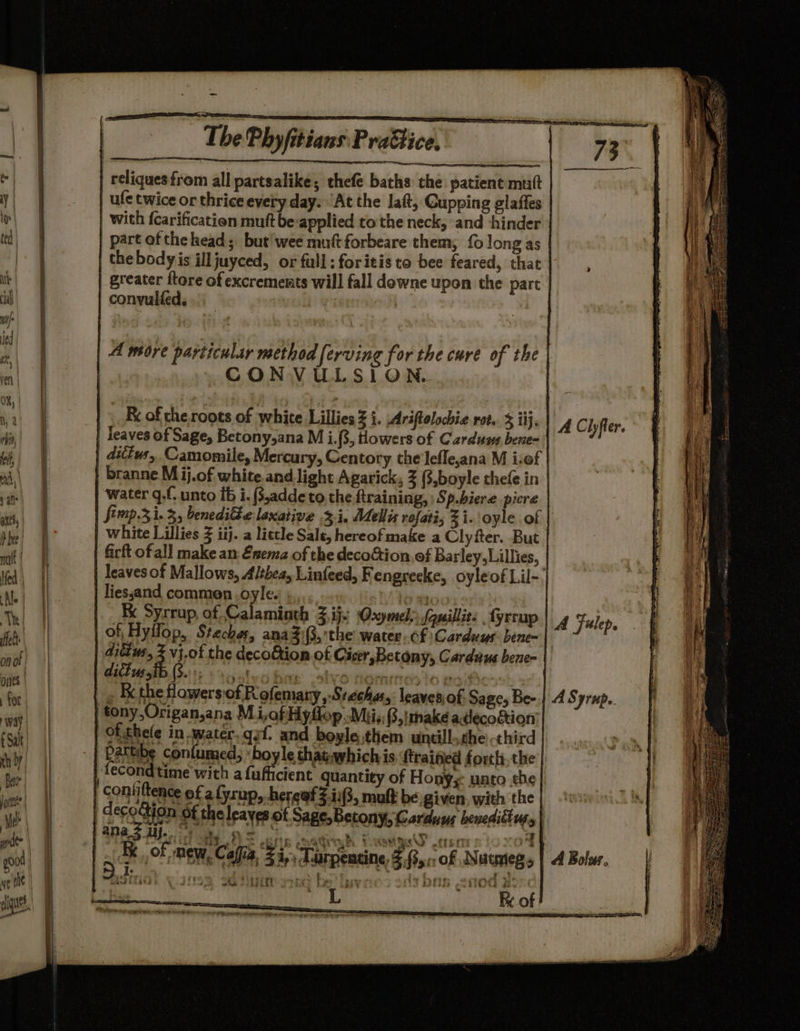 The Phyſitians Practice. 73
reliques from all parts alike; theſe baths the patient muſt
uſe twice or thrice every day. At the laſt, Cupping glaſſes
with ſcarification muſt be applied to the neck, and hinder
part of the head; but wee muſt forbeare them, ſo long as
the body is ill juyced, or full: for it is to bee feared, that
greater ſtore of excrements will fall downe upon the part
convulſed.
A more particular method ſerving for the cure of the
CONVULSION.
℞ of the roots of white Lillies ℥ i. Ariſtolochie rot. ʒ iij.
A Clyſter.
leaves of Sage, Betony, ana M i.ß, flowers of Carduus bene-
dictus, Camomile, Mercury, Centory the leſſe, ana M i. of
branne M ij. of white and light Agarick, ℥ ß, boyle theſe in
water q.ſ. unto ℔ i.ß, adde to the ſtraining, Sp. hiere picre
ſimp. ʒ i. ʒ, benedictæ laxative ʒ i. Mellis roſati, ℥ i. oyle of
white Lillies ℥ iij. a little Salt, hereof make a Clyſter. But
firſt of all make an Enema of the decoction of Barley, Lillies,
leaves of Mallows, Althea, Linſeed, Fengreeke, oyle of Lil-
lies, and common oyle.
℞ Syrrup of Calaminth ℥ ij. Oxymel. ſquillit. ſyrrup
A Julep.
of Hyſſop, Stechas, ana ℥ ß, the water of Carduus bene-
dictus, ℥ vj. of the decoction of Cicer, Betony, Carduus bene-
dictus, ℔ ß.
℞ the flowers of Roſemary, Stechas, leaves of Sage, Be-
A Syrup.
tony, Origan, ana M i, of Hyſſop M i. ß, make a decoction
of theſe in water q.ſ. and boyle them untill the third
part be conſumed, boyle that which is ſtrained forth, the
ſecond time with a ſufficient quantity of Hony, unto the
conſiſtence of a ſyrup, hereof ℥ iiß, muſt be given with the
decoction of the leaves of Sage, Betony, Carduus benedictus,
ana ℥ iij.
℞ of new Caſſia, ℥ i, Turpentine, ℥ ß, of Nutmegs
A Bolus.
L ℞ of